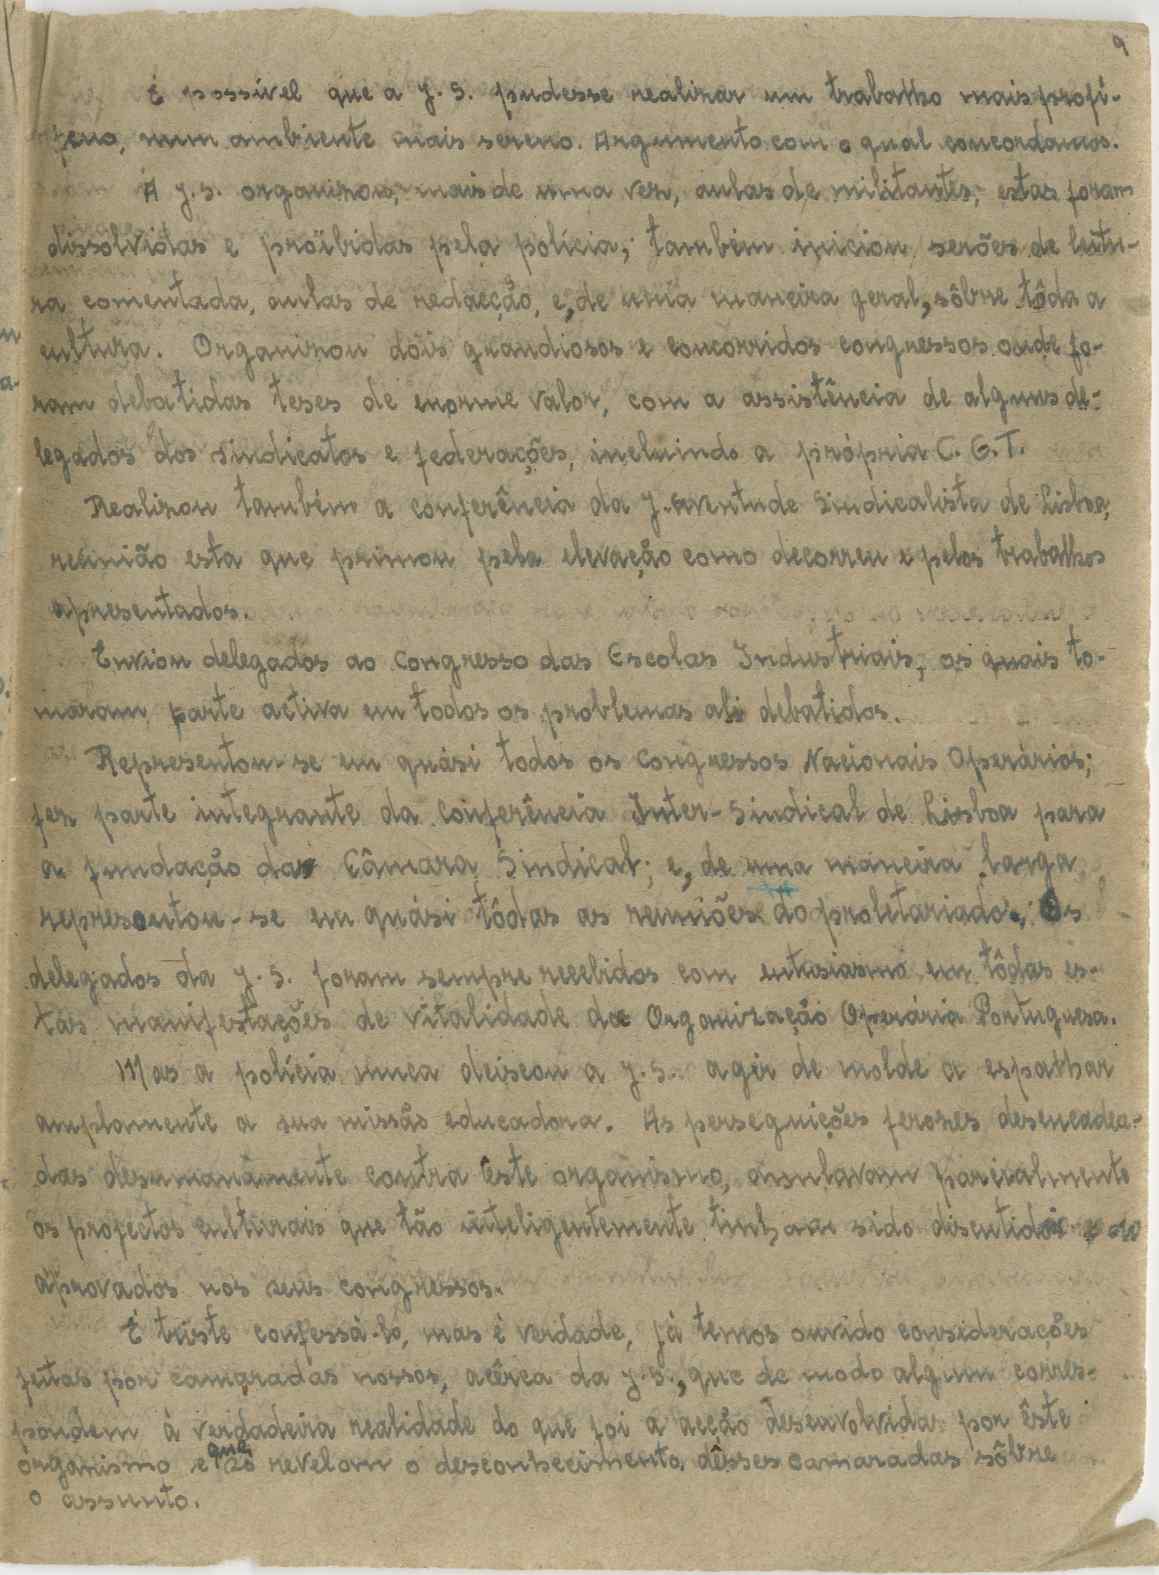 9
É possível que a J. S. pudesse realizar um trabalho mais profí-
feno, num ambiente mais sereno. Argumento com o qual concordamos.
A J. S. organizou, mais de uma vez, aulas de militantes, estas foram
dissolvidas e proïbidas pela polícia; também iniciou serões de leitu-
ra comentada, aulas de redacção, e, de uma maneira geral, sôbre tôda a
cultura. Organizou dois grandiosos e concorridos congressos onde fo-
ram debatidas teses de enorme valor, com a assistência de alguns de-
legados dos sindicatos e federações, incluindo a própria C. G. T.
Realizou também a conferência da Juventude Sindicalista de Lisboa,
reünião esta que primou pela elevação como decorreu e pelos trabalhos
apresentados.
Enviou delegados ao Congresso das Escolas Industriais, os quais to-
maram parte activa em todos os problemas ali debatidos.
Representou-se em quási todos os Congressos Nacionais Operários;
fez parte integrante da Conferência Inter-Sindical de Lisboa para
a fundação da Câmara Sindical; e, de uma maneira larga
representou-se em quási tôdas as reüniões do proletariado. Os
delegados da J. S. foram sempre recebidos com entusiasmo em tôdas es-
tas manifestações de vitalidade da Organização Operária Portuguesa.
Mas a polícia nunca deixou a J. S. agir de molde a espalhar
amplamente a sua missão educadora. As perseguições ferozes desencadea-
das desumanamente contra êste organismo, anulavam parcialmente
os projectos culturais que tão inteligentemente tinham sido discutidos e
aprovados nos seus congressos.
É triste confessá-lo, mas é verdade, já temos ouvido considerações
feitas por camaradas nossos, acêrca da J. S., que de modo algum corres-
pondem à verdadeira realidade do que foi a acção desenvolvida por êste
organismo e que só revelam o desconhecimento dêsses camaradas sôbre
o assunto.